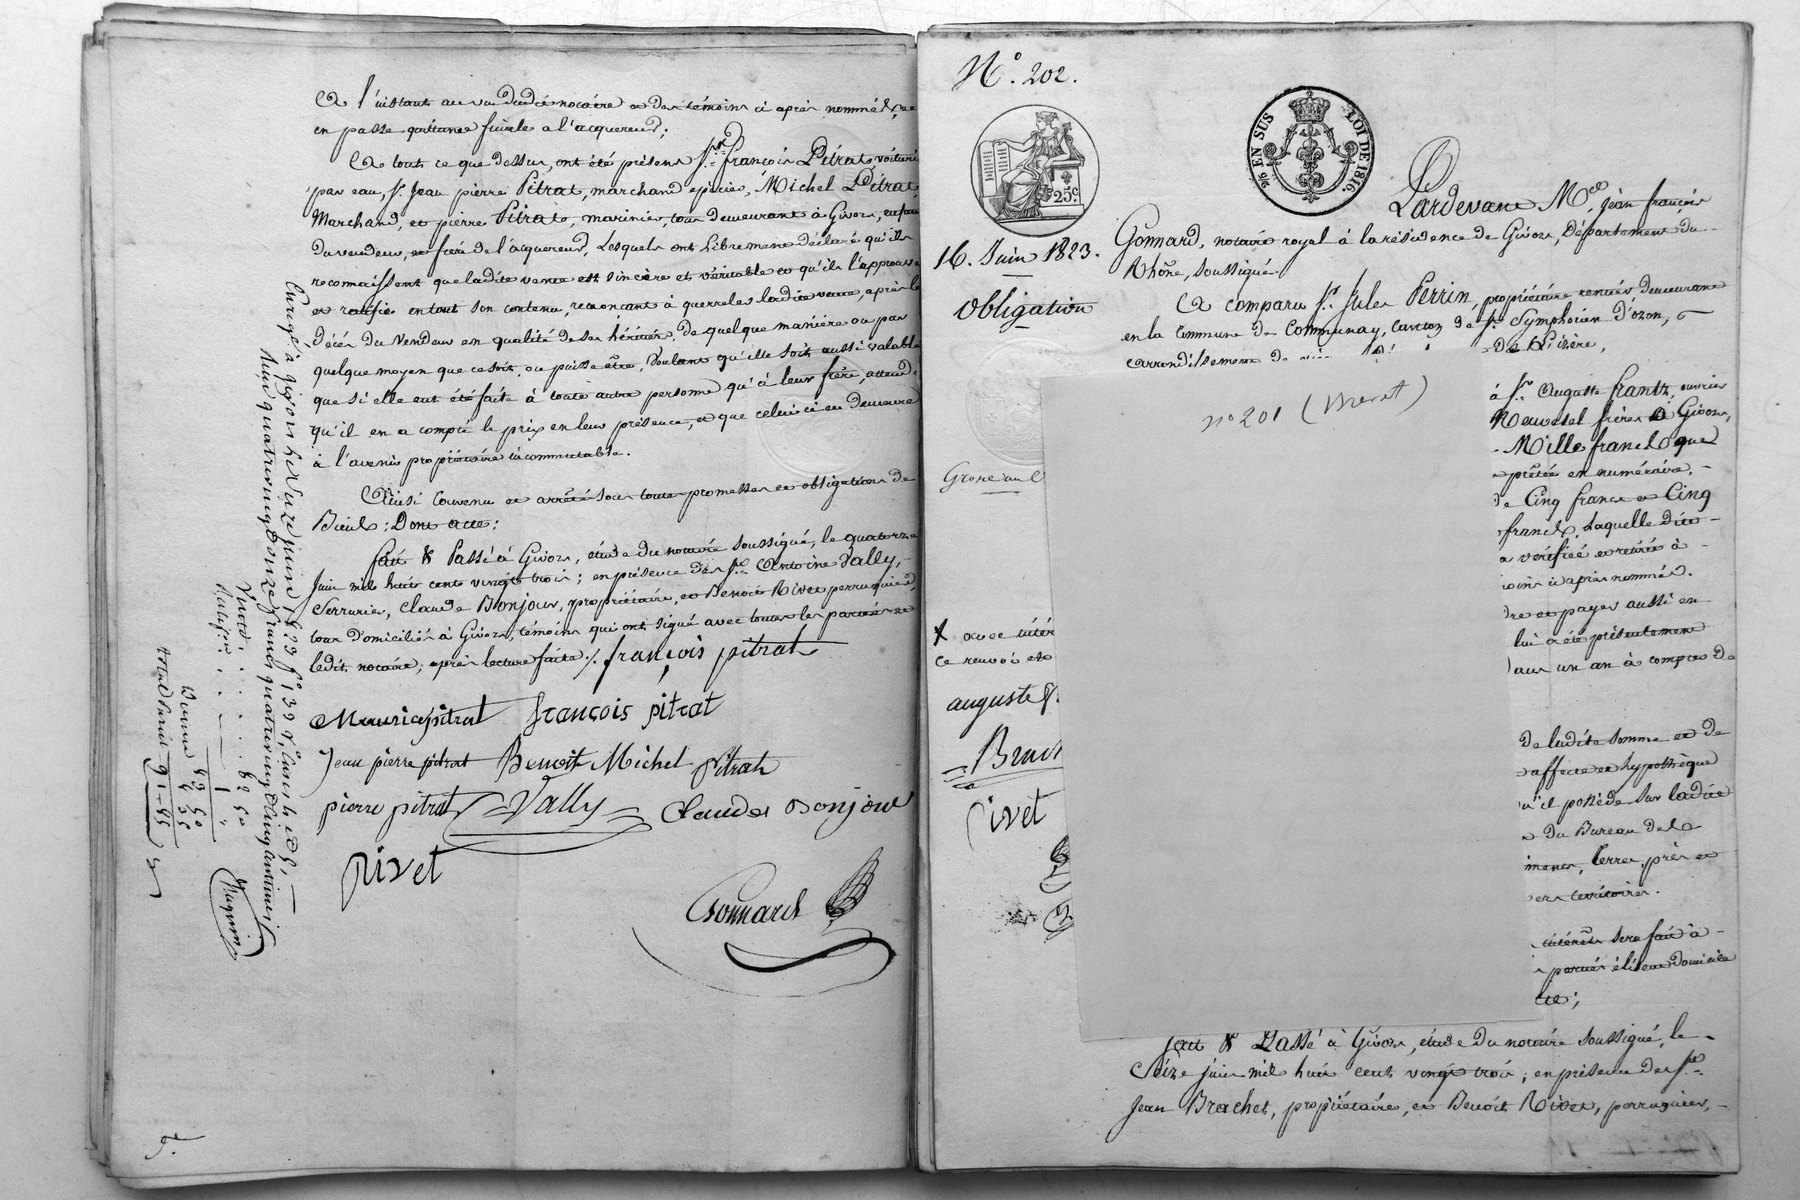 à l'instant au vu dudit notaire et des témoins ci après nommés, et
en passe quittance finale à l'acquereur;
À tout ce que dessus, ont été présens Sr. françois Pitrat voiturier
par eau, Sr. Jean pierre Pitrat, marchand épicier, Michel Pitrat
Marchand, et pierre Pitrat, marinier, tous demeurant à Givors, enfans
du vendeur, et frères de l'acquereur, Lesquels ont librement déclaré qu'ils
reconnaissent que ladite vente est sincère et véritable et qu'ils l'approuvent
et ratifie en tout son contenu, renonçant à quereler ladite vente, après le
décès du Vendeur en qualité de ses héritiers, de quelque manière ou par
quelque moyen que ce soit, ou puisse être, Voulant qu'elle soit aussi valable
que si elle eut été faite à toute autre personne qu'à leur frère, attendu
qu'il en a compté le prix en leur présence, et que celui ci en demeure
à l'avenir propriétaire incommutable.
Ainsi Convenu et arrêté sous toute promesses et obligations de
Biens; Dont acte;
fait & Passé à Givors, étude du notaire soussigné, le quatorze
Juin mil huit cent vingt trois; en présence des Srs. Antoine Vally,
Serrurier, Claude Bonjour, propriétaire, et Benoit Rivet perruquier,
tous domiciliés à Givors, témoins qui ont signé avec toutes les parties et
ledit notaire, après lecture faite ./. françois pitrat
Maurice pitrat françois pitrat
Jean pierre pitrat Benoit Michel Pitrat
pierre pitrat Vally Claude Bonjour
Rivet
Gonnard
quatre vingt onze francs quatre vingt cinq centimes
Vente . . . . 82 50
Ratifon . . . 1 "
9 1 - 85
5.
N°. 202.
25c.
2/6 EN SUS LOI DE 1816.
16. Juin 1823.
obligation
Pardevant Me. jean françois
Gonnard, notaire royal à la résidence de Givors, Département du
Rhône, soussigné.
A comparu Sr. Jules Perrin, propriétaire rentier demeurant
en la Commune de Communay, Canton de St. Symphorien d'ozon,
arrondissement de de l'isère,
n° 201 (Brevet)
à Sr. Auguste frantz, ouvrier
Neuvesel frères à Givors,
Mille francs que
prêtée en numéraire,
de Cinq francs et Cinq
francs, Laquelle dite
a vérifiée et retirée à
ci après nommés.
et payer aussi en
lui a été présentement
dans un an à compter de
De ladite somme et de
affecte et hypothèque
qu'il possède sur ladite
du Bureau de la
Terres, prés et
territoires.
intérêts sera fait à
parties élisent domicile
Grosse au C
X avec intér
ce renvoi est
auguste f.
Brach
Rivet
fait & Passé à Givors, étude du notaire soussigné, le
Seize juin mil huit cent vingt trois; en présence des Srs.
Jean Brachet, propriétaire, et Benoit Rivet, perruquier,